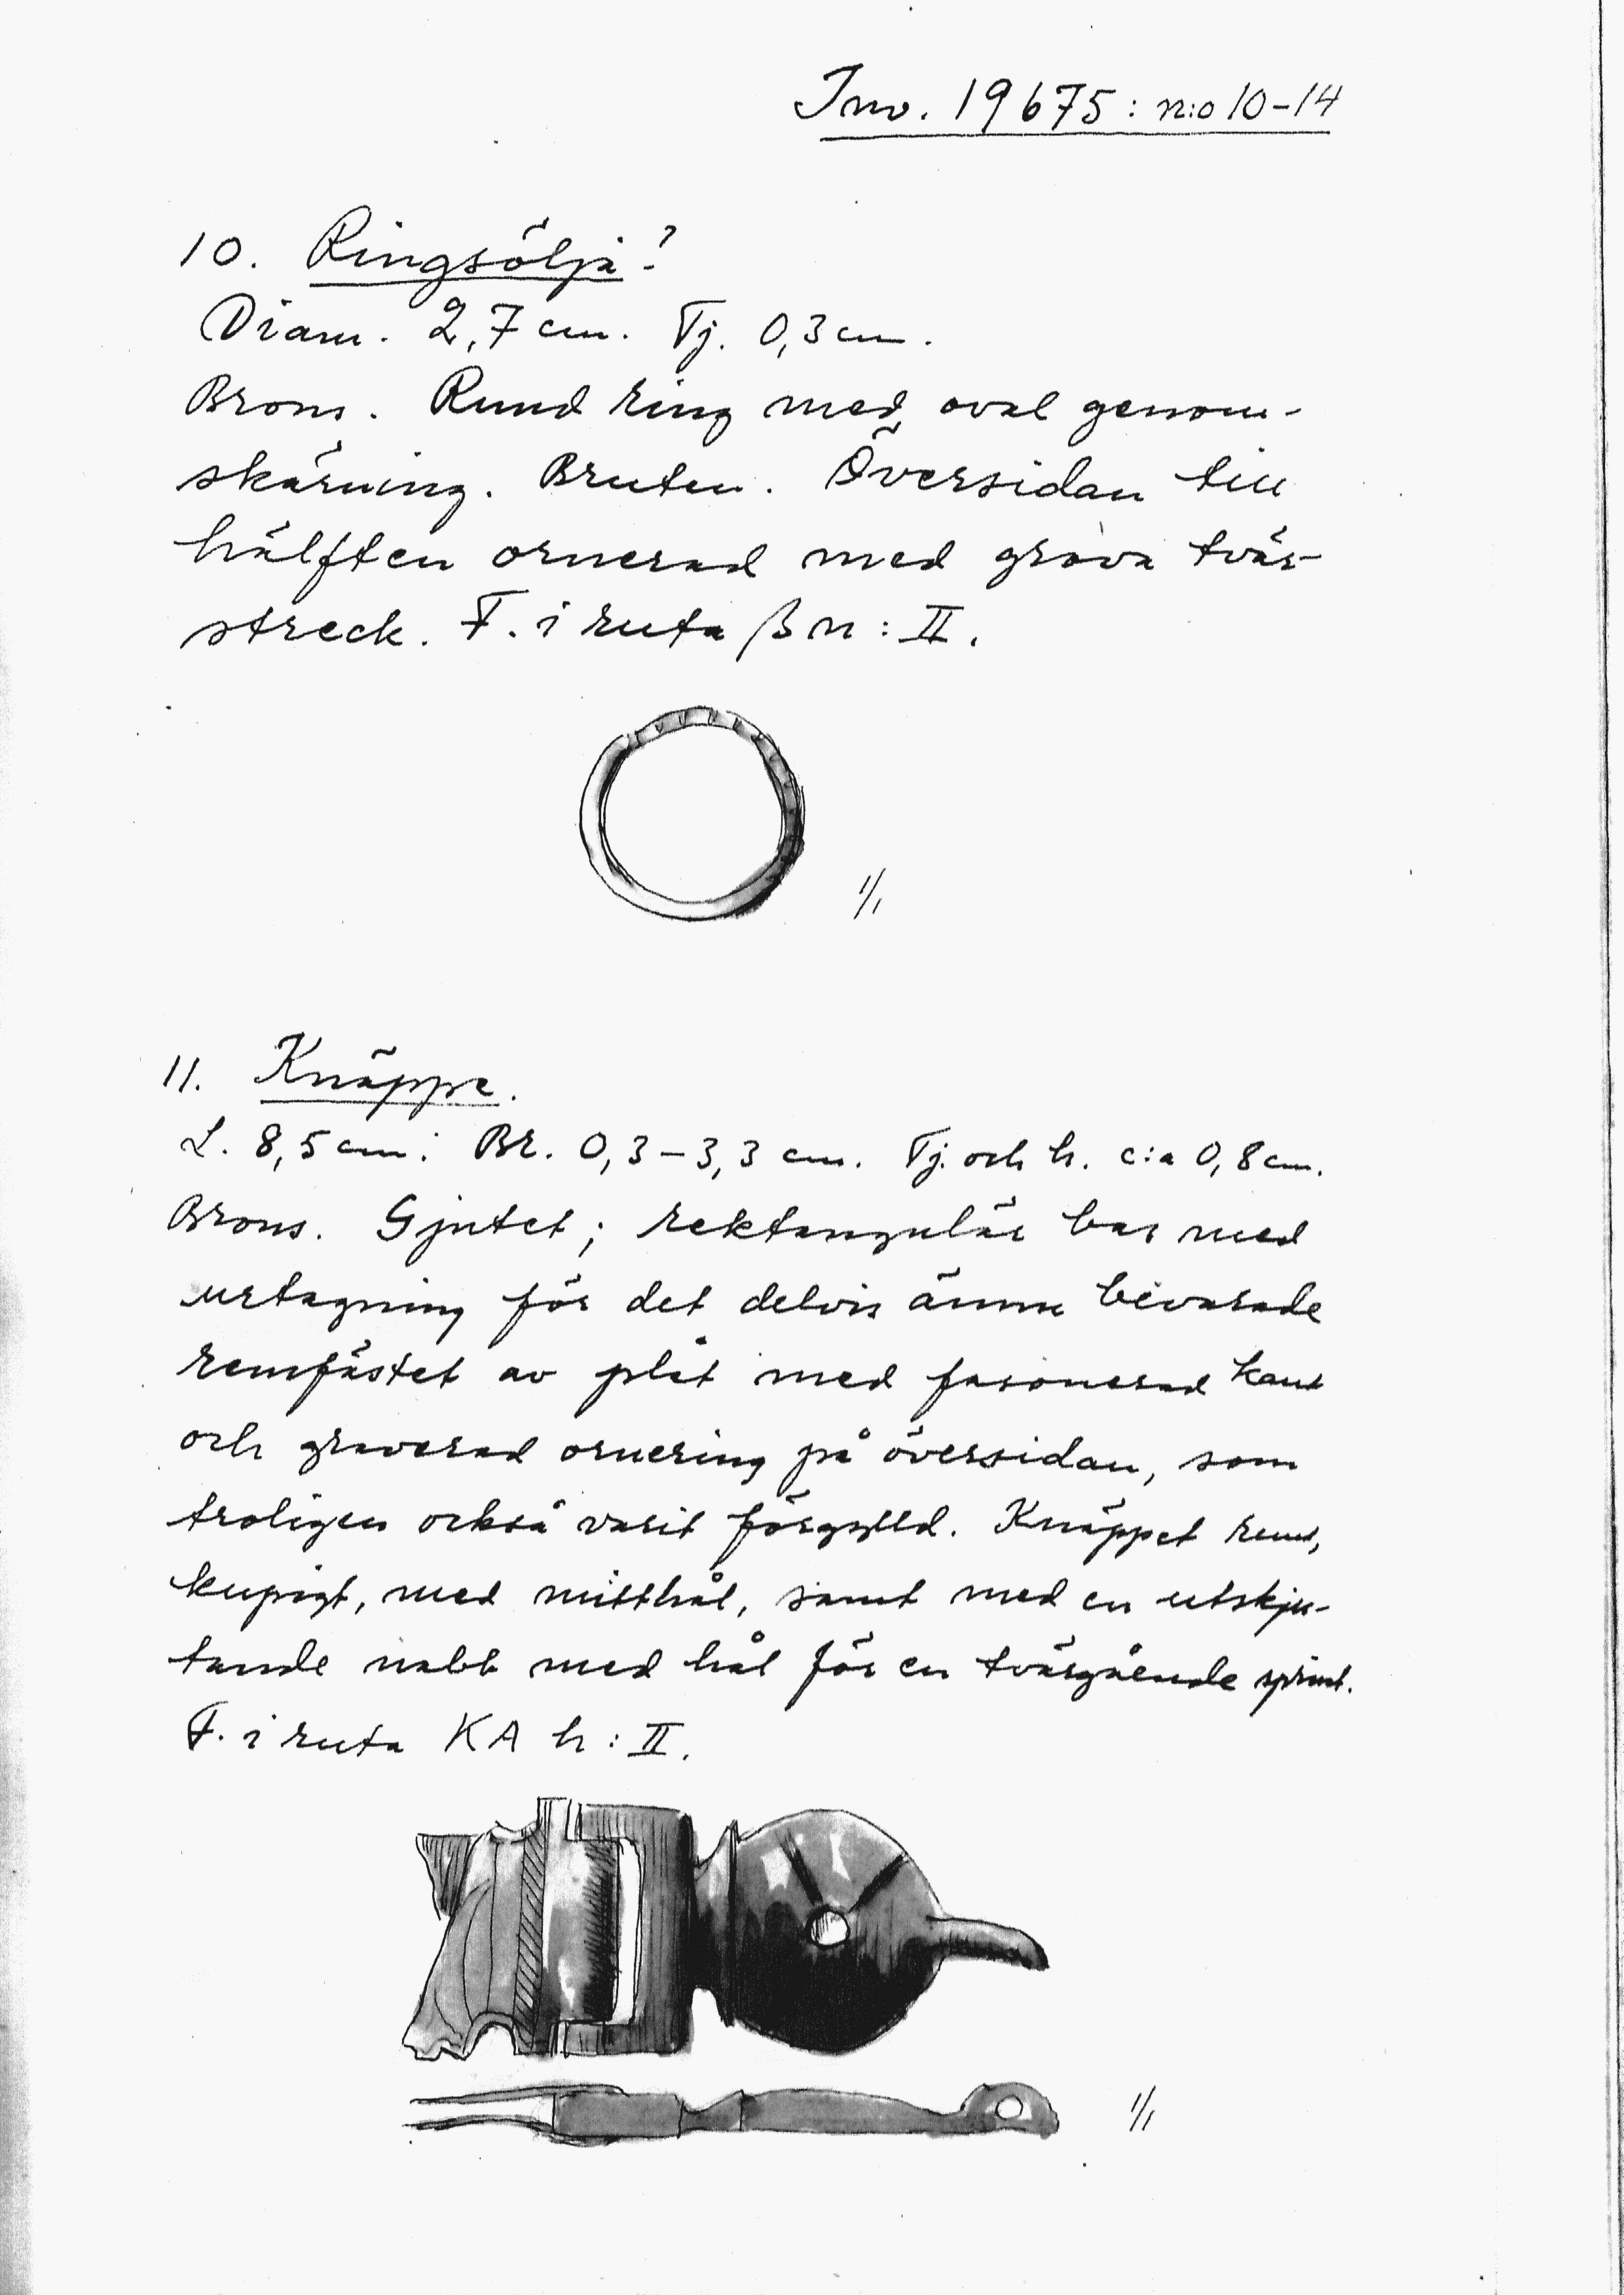 Inv. 19675: n:o 10-14
10. Ringsölja?
Diam. 2,7 cm. Tj. 0,3 cm.
Brons. Rund ring med oval genom-
skärning. Bruten. Översidan till
hälften ornerad med grova tvär-
streck. F. i ruta β n: II.
1/1
11. Knäppe.
L. 8,5 cm. Br. 0,3-3,3 cm. Tj. och h. c:a 0,8 cm.
Brons. Gjutet; rektangulär bas med
urtagning för det delvis ännu bevarade
remfästet av plåt med fasonerad kant
och graverad ornering på översidan, som
troligen också varit förgylld. Knäppet runt,
kupigt, med mitthål, samt med en utskju-
tande nabb med hål för en tvärgående sprint.
F. i ruta KA h: II.
1/1